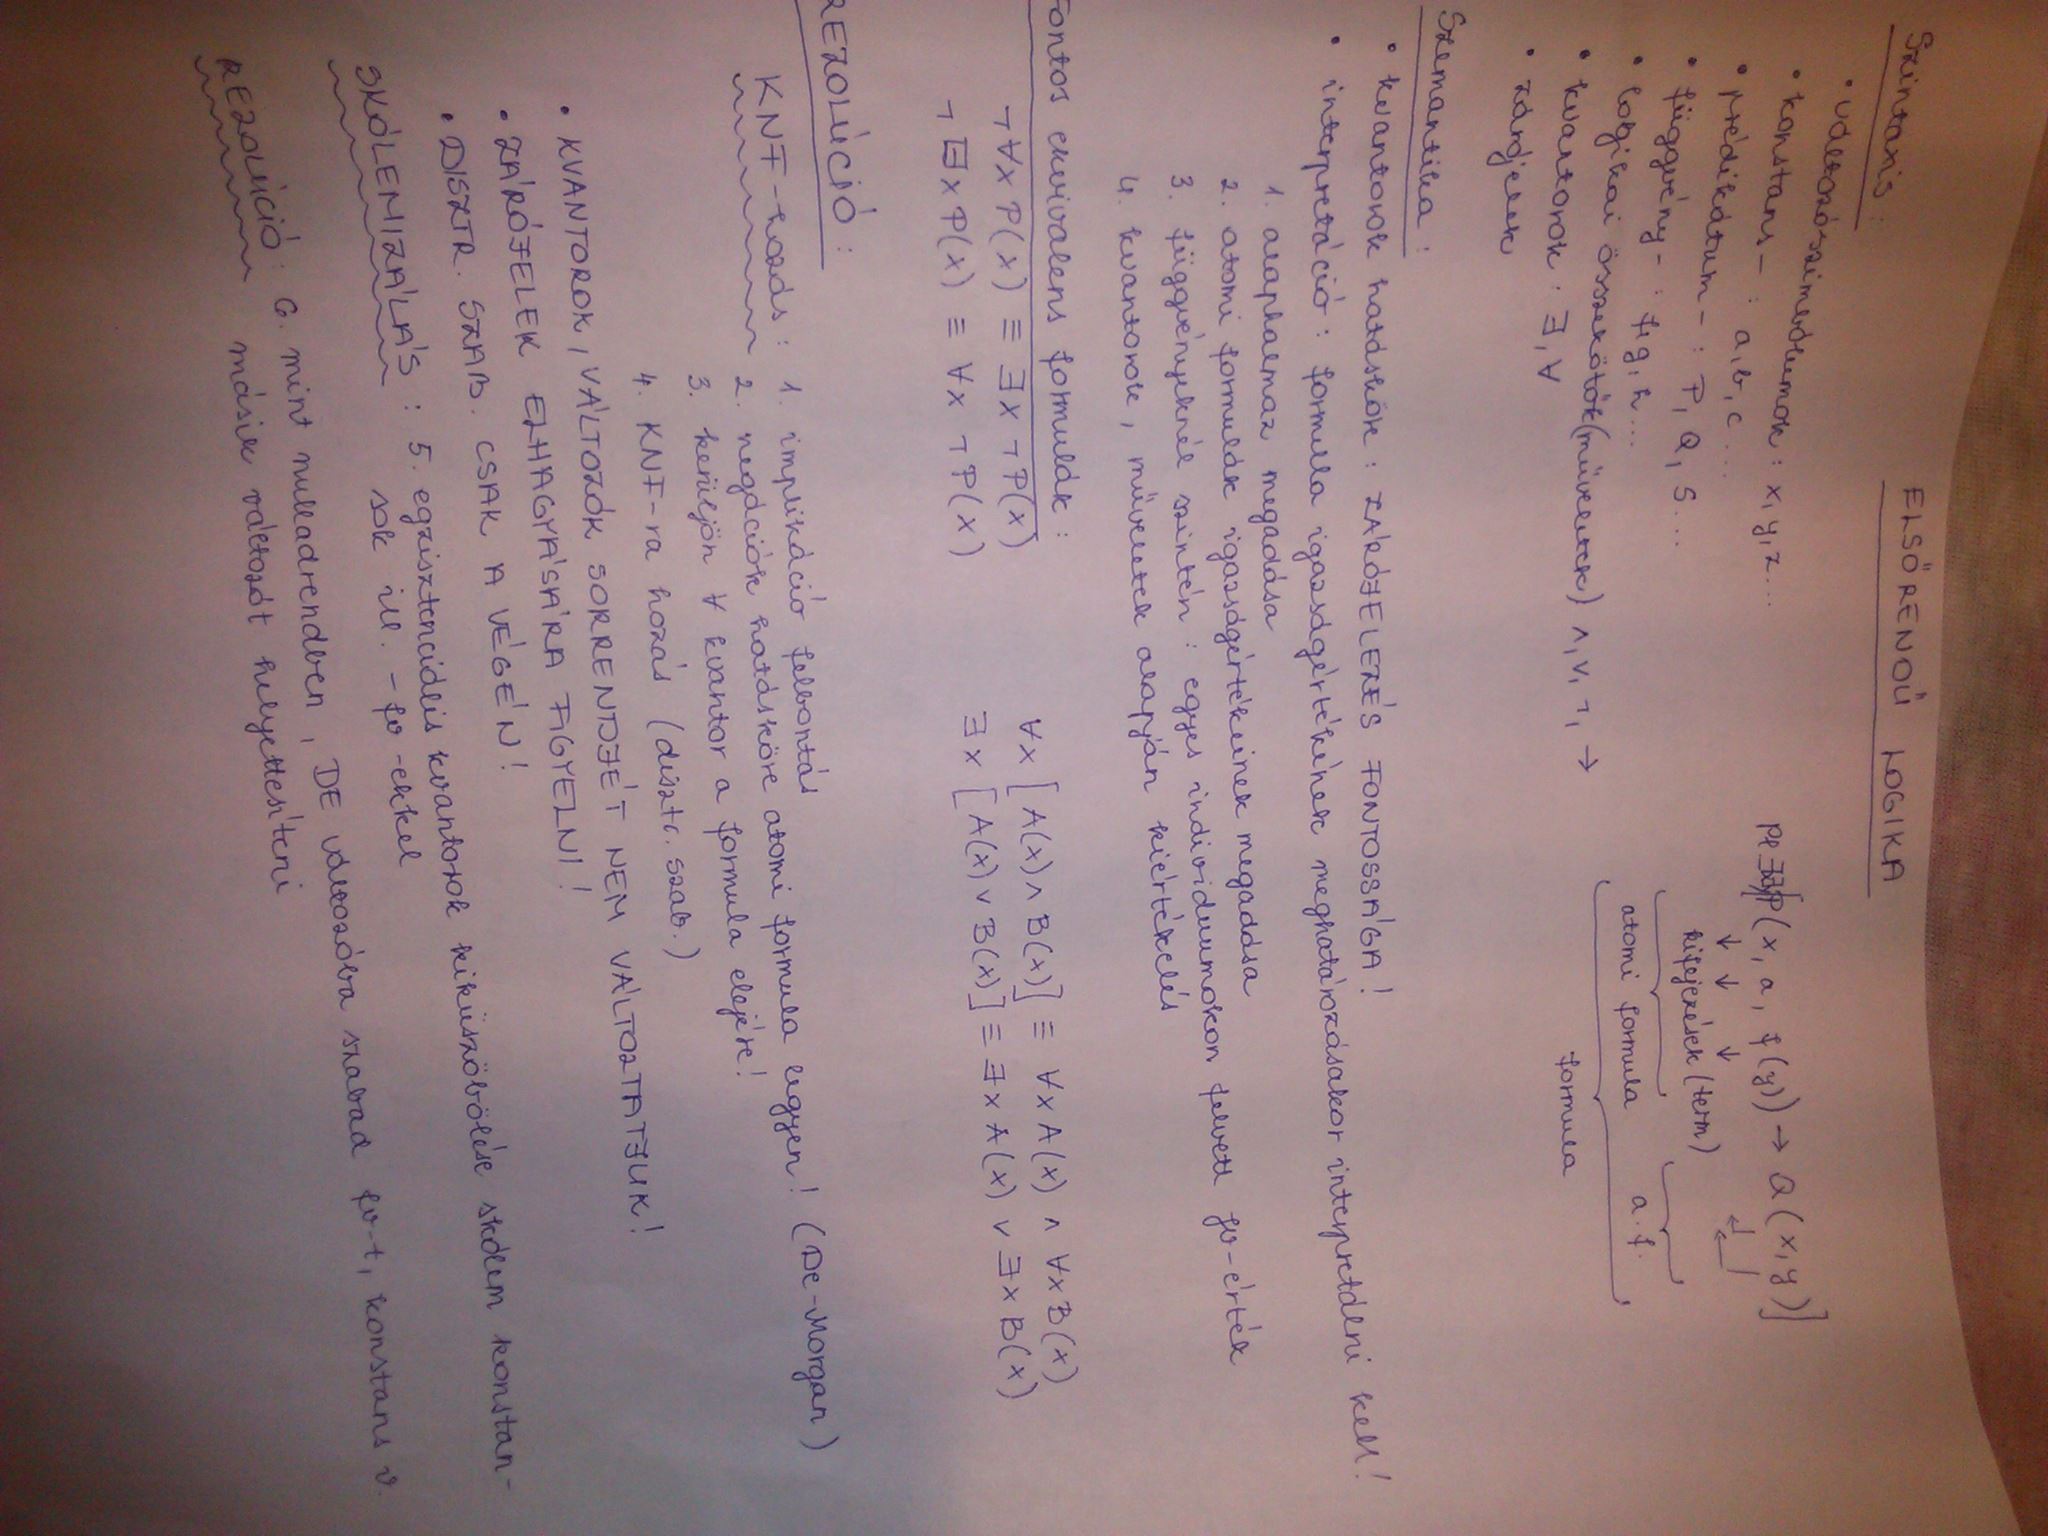 ELSŐRENDŰ LOGIKA
Szintaxis:
• változószimbólumok: x, y, z...
• konstans- : a, b, c...
• prédikátum- : P, Q, S...
• függvény- : f, g, h...
• logikai összekötők(műveletek) ∧, ∨, ¬, →
• kvantorok: ∃, ∀
• zárójelek
P(x, a, f(y)) → Q(x, y)]
↓ ↓ ↓
kifejezések (term)
atomi formula a. f.
formula
Szemantika:
• kvantorok hatásköre: ZÁRÓJELEZÉS FONTOSSÁGA!
• interpretáció: formula igazságértékének meghatározásakor interpretálni kell!
1. alaphalmaz megadása
2. atomi formulák igazságértékeinek megadása
3. függvényeknél szintén: egyes individuumokon felvett fv-érték
4. kvantorok, műveletek alapján kiértékelés
Fontos ekvivalens formulák:
¬∀x P(x) ≡ ∃x ¬P(x)
¬∃x P(x) ≡ ∀x ¬P(x)
∀x [A(x) ∧ B(x)] ≡ ∀x A(x) ∧ ∀x B(x)
∃x [A(x) ∨ B(x)] ≡ ∃x A(x) ∨ ∃x B(x)
REZOLÚCIÓ:
KNF-hozás: 1. implikáció felbontás
2. negációk hatásköre atomi formula legyen! (De-Morgan)
3. kerüljön ∀ kvantor a formula elejére!
4. KNF-ra hozás (disztr. szab.)
• KVANTOROK, VÁLTOZÓK SORRENDJÉT NEM VÁLTOZTATJUK!
• ZÁRÓJELEK ELHAGYÁSÁRA FIGYELNI!
• DISZTR. SZAB. CSAK A VÉGÉN!
SKÓLEMIZÁLÁS: 5. egzisztenciális kvantorok kiküszöbölése skólem konstan-
sok ill. -fv-ekkel
REZOLÚCIÓ: 6. mint nulladrendben, DE változóba szabad fv-t, konstans v.
másik változót helyettesíteni